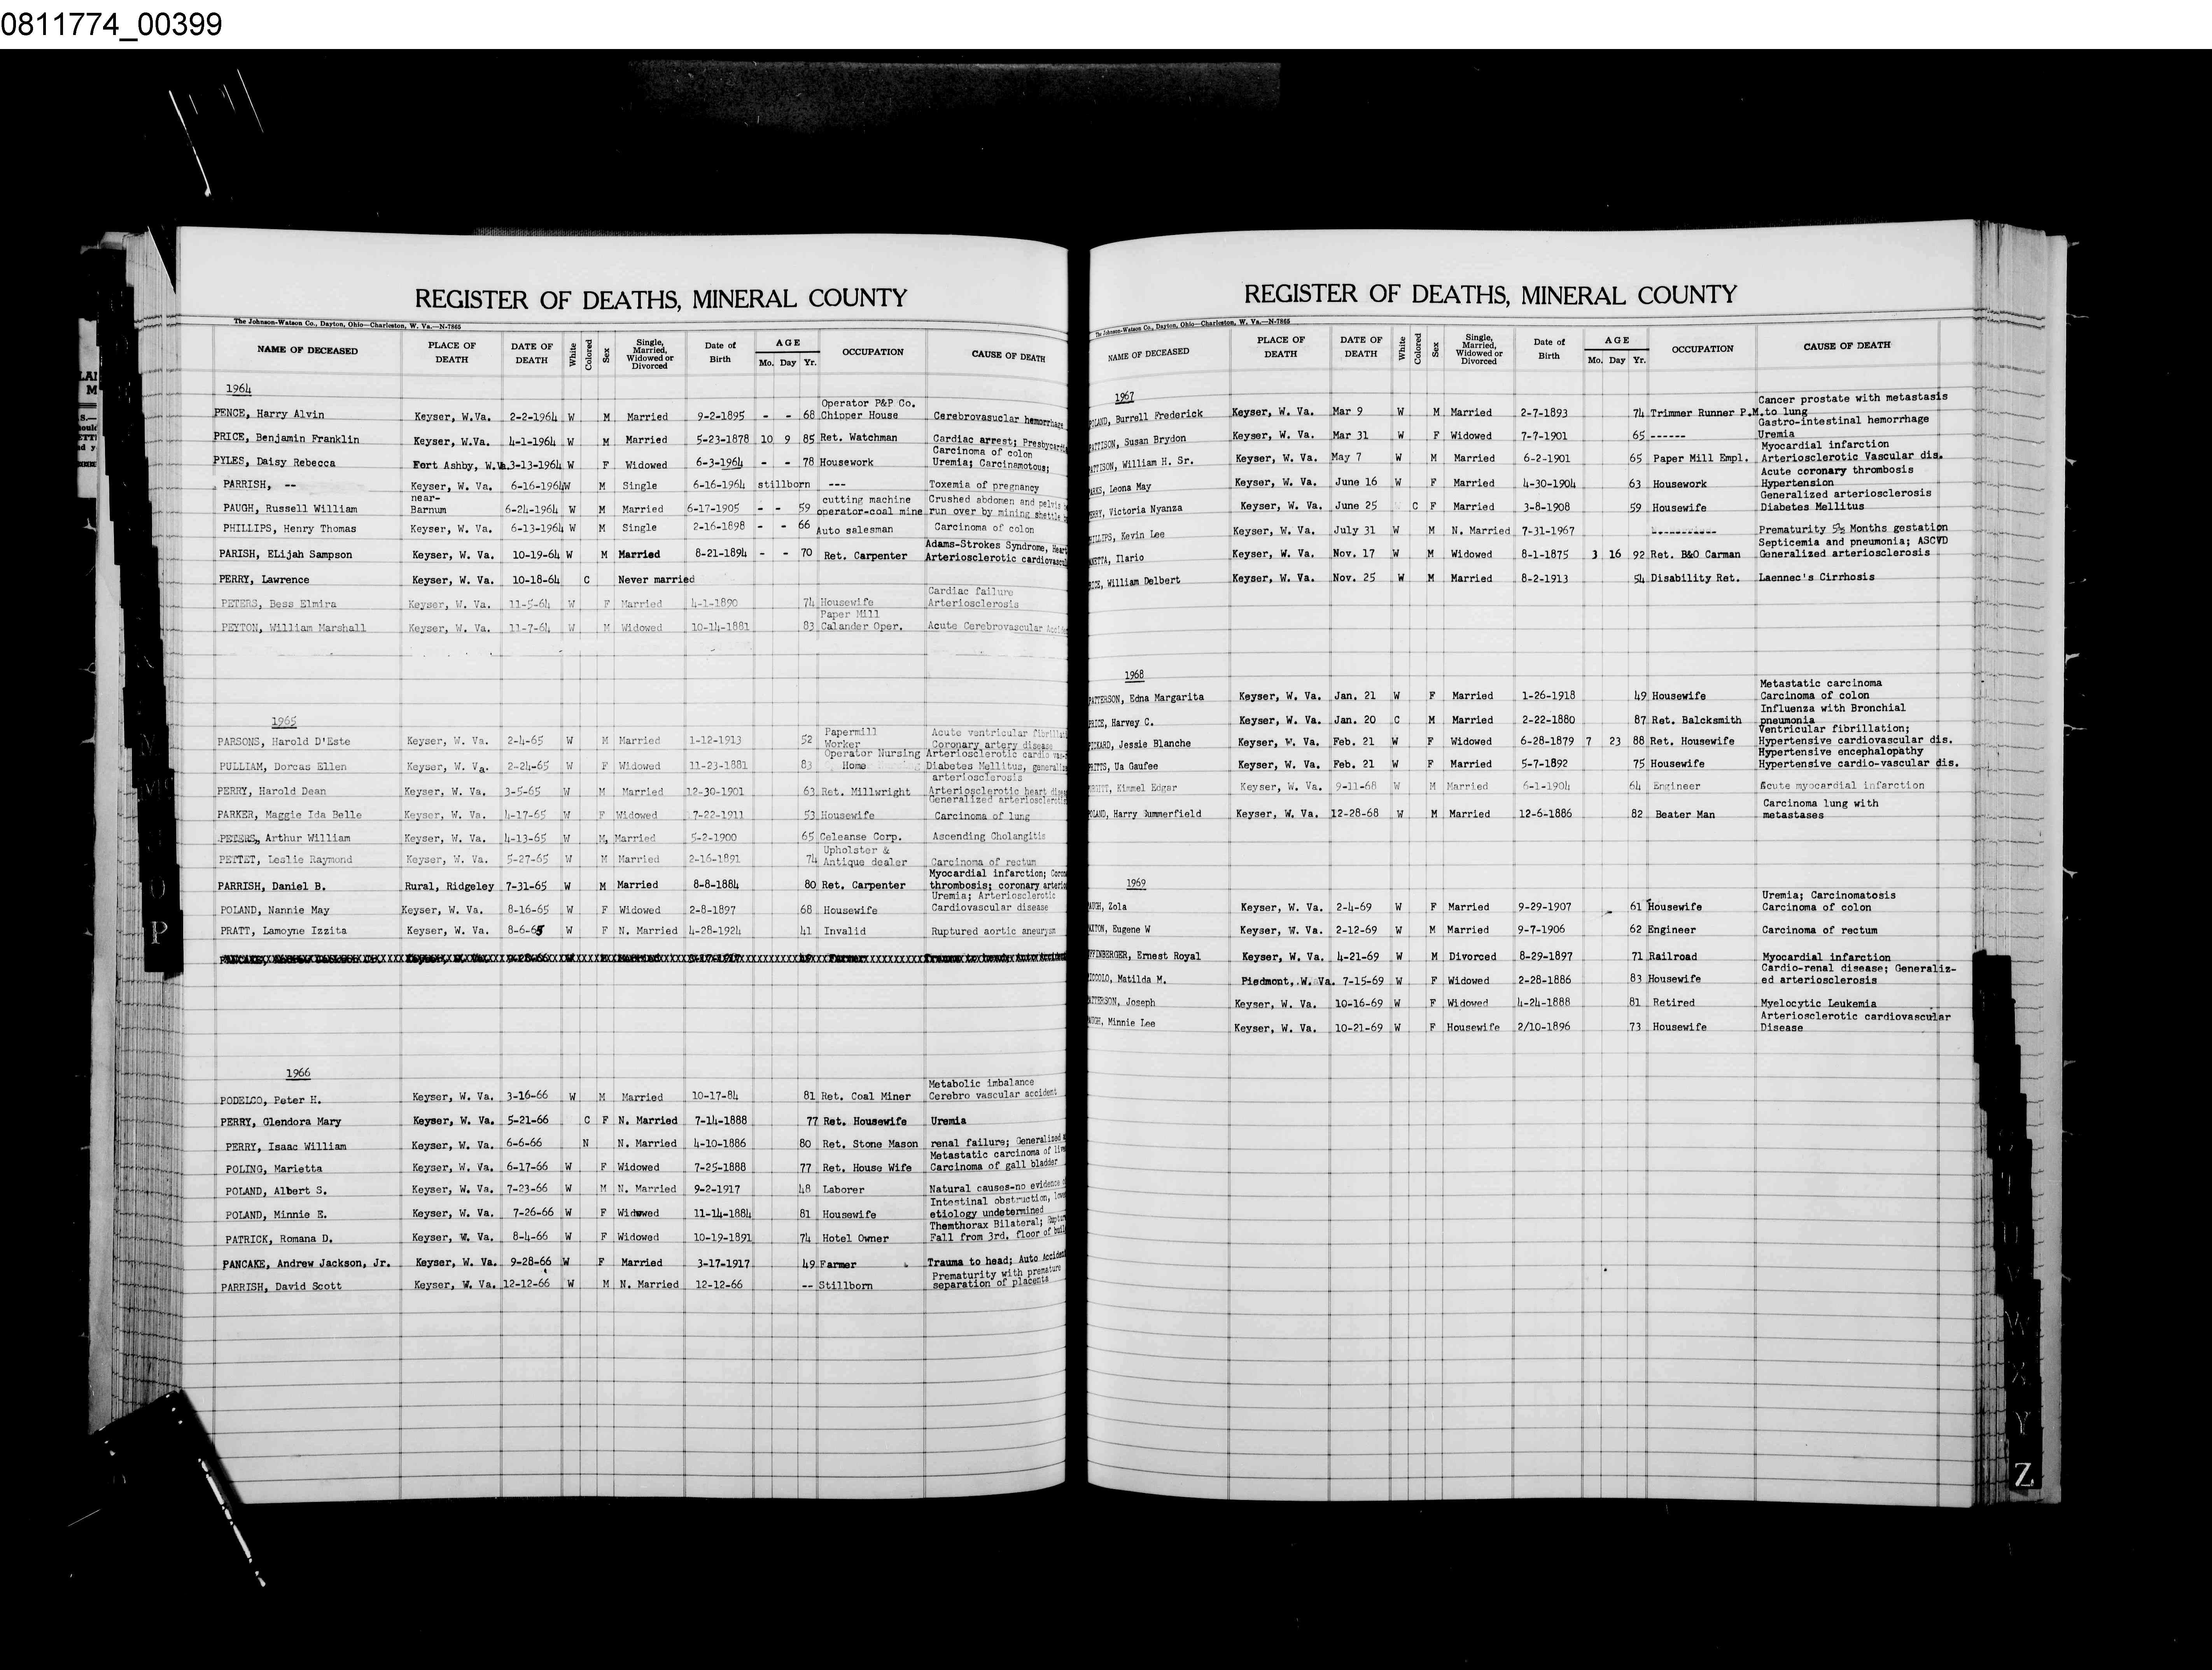 0811774_00399
REGISTER OF DEATHS, MINERAL COUNTY
The Johnson-Watson Co., Dayton, Ohio—Charleston, W. Va.—N-7865
NAME OF DECEASED PLACE OF DEATH DATE OF DEATH White Colored Sex Single, Married, Widowed or Divorced Date of Birth AGE Mo. Day Yr. OCCUPATION CAUSE OF DEATH
1964
Operator P&P Co.
PENCE, Harry Alvin Keyser, W.Va. 2-2-1964 W M Married 9-2-1895 - - 68 Chipper House Cerebrovasuclar hemorrhage
PRICE, Benjamin Franklin Keyser, W.Va. 4-1-1964 W M Married 5-23-1878 10 9 85 Ret. Watchman Cardiac arrest;
Carcinoma of colon
PYLES, Daisy Rebecca Fort Ashby, W.Va. 3-13-1964 W F Widowed 6-3-1964 - - 78 Housework Uremia; Carcinamotous;
PARRISH, -- Keyser, W. Va. 6-16-1964 W M Single 6-16-1964 stillborn --- Toxemia of pregnancy
near- cutting machine Crushed abdomen and pelvis
PAUGH, Russell William Barnum 6-24-1964 W M Married 6-17-1905 - - 59 operator-coal mine run over by mining shuttle
PHILLIPS, Henry Thomas Keyser, W. Va. 6-13-1964 W M Single 2-16-1898 - - 66 Auto salesman Carcinoma of colon
Adams-Strokes Syndrome, Heart
PARISH, ELijah Sampson Keyser, W. Va. 10-19-64 W M Married 8-21-1894 - - 70 Ret. Carpenter Arteriosclerotic
PERRY, Lawrence Keyser, W. Va. 10-18-64 C Never married
Cardiac failure
PETERS, Bess Elmira Keyser, W. Va. 11-5-64 W F Married 4-1-1890 74 Housewife Arteriosclerosis
Paper Mill
PEYTON, William Marshall Keyser, W. Va. 11-7-64 W M Widowed 10-14-1881 83 Calander Oper. Acute Cerebrovascular
1965
Papermill Acute ventricular
PARSONS, Harold D'Este Keyser, W. Va. 2-4-65 W M Married 1-12-1913 52 Worker Coronary artery disease
Operator Nursing Arteriosclerotic cardio
PULLIAM, Dorcas Ellen Keyser, W. Va. 2-24-65 W F Widowed 11-23-1881 83 Home Diabetes Mellitus,
arteriosclerosis
PERRY, Harold Dean Keyser, W. Va. 3-5-65 W M Married 12-30-1901 63 Ret. Millwright Arteriosclerotic heart
Generalized
PARKER, Maggie Ida Belle Keyser, W. Va. 4-17-65 W F Widowed 7-22-1911 53 Housewife Carcinoma of lung
PETERS, Arthur William Keyser, W. Va. 4-13-65 W M, Married 5-2-1900 65 Celeanse Corp. Ascending Cholangitis
Upholster &
PETTET, Leslie Raymond Keyser, W. Va. 5-27-65 W M Married 2-16-1891 74 Antique dealer Carcinoma of rectum
Myocardial infarction;
PARRISH, Daniel B. Rural, Ridgeley 7-31-65 W M Married 8-8-1884 80 Ret. Carpenter thrombosis; coronary
Uremia; Arteriosclerotic
POLAND, Nannie May Keyser, W. Va. 8-16-65 W F Widowed 2-8-1897 68 Housewife Cardiovascular disease
PRATT, Lamoyne Izzita Keyser, W. Va. 8-6-65 W F N. Married 4-28-1924 41 Invalid Ruptured aortic aneurysm
1966
Metabolic imbalance
PODELCO, Peter H. Keyser, W. Va. 3-16-66 W M Married 10-17-84 81 Ret. Coal Miner Cerebro vascular accident
PERRY, Glendora Mary Keyser, W. Va. 5-21-66 C F N. Married 7-14-1888 77 Ret. Housewife Uremia
PERRY, Isaac William Keyser, W. Va. 6-6-66 N N. Married 4-10-1886 80 Ret. Stone Mason renal failure; Generalized
Metastatic carcinoma of
POLING, Marietta Keyser, W. Va. 6-17-66 W F Widowed 7-25-1888 77 Ret. House Wife Carcinoma of gall bladder
POLAND, Albert S. Keyser, W. Va. 7-23-66 W M N. Married 9-2-1917 48 Laborer Natural causes-no evidence
Intestinal obstruction,
POLAND, Minnie E. Keyser, W. Va. 7-26-66 W F Widowed 11-14-1884 81 Housewife etiology undetermined
Themthorax Bilateral;
PATRICK, Romana D. Keyser, W. Va. 8-4-66 W F Widowed 10-19-1891 74 Hotel Owner Fall from 3rd. floor of
PANCAKE, Andrew Jackson, Jr. Keyser, W. Va. 9-28-66 W F Married 3-17-1917 49 Farmer Trauma to head; Auto Accident
Prematurity with premature
PARRISH, David Scott Keyser, W. Va. 12-12-66 W M N. Married 12-12-66 -- Stillborn separation of placenta
REGISTER OF DEATHS, MINERAL COUNTY
The Johnson-Watson Co., Dayton, Ohio—Charleston, W. Va.—N-7865
NAME OF DECEASED PLACE OF DEATH DATE OF DEATH White Colored Sex Single, Married, Widowed or Divorced Date of Birth AGE Mo. Day Yr. OCCUPATION CAUSE OF DEATH
1967
Cancer prostate with metastasis
Burrell Frederick Keyser, W. Va. Mar 9 W M Married 2-7-1893 74 Trimmer Runner P.M. to lung
Gastro-intestinal hemorrhage
Susan Brydon Keyser, W. Va. Mar 31 W F Widowed 7-7-1901 65 ------ Uremia
Myocardial infarction
William H. Sr. Keyser, W. Va. May 7 W M Married 6-2-1901 65 Paper Mill Empl. Arteriosclerotic Vascular dis.
Acute coronary thrombosis
Leona May Keyser, W. Va. June 16 W F Married 4-30-1904 63 Housework Hypertension
Generalized arteriosclerosis
Victoria Nyanza Keyser, W. Va. June 25 C F Married 3-8-1908 59 Housewife Diabetes Mellitus
Kevin Lee Keyser, W. Va. July 31 W M N. Married 7-31-1967 ----------- Prematurity 5½ Months gestation
Septicemia and pneumonia; ASCVD
Ilario Keyser, W. Va. Nov. 17 W M Widowed 8-1-1875 3 16 92 Ret. B&O Carman Generalized arteriosclerosis
William Delbert Keyser, W. Va. Nov. 25 W M Married 8-2-1913 54 Disability Ret. Laennec's Cirrhosis
1968
Metastatic carcinoma
PATTERSON, Edna Margarita Keyser, W. Va. Jan. 21 W F Married 1-26-1918 49 Housewife Carcinoma of colon
Influenza with Bronchial
PRICE, Harvey C. Keyser, W. Va. Jan. 20 C M Married 2-22-1880 87 Ret. Balcksmith pneumonia
Ventricular fibrillation;
Jessie Blanche Keyser, W. Va. Feb. 21 W F Widowed 6-28-1879 7 23 88 Ret. Housewife Hypertensive cardiovascular dis.
Hypertensive encephalopathy
PRITTS, Ua Gaufee Keyser, W. Va. Feb. 21 W F Married 5-7-1892 75 Housewife Hypertensive cardio-vascular dis.
Kimmel Edgar Keyser, W. Va. 9-11-68 W M Married 6-1-1904 64 Engineer Acute myocardial infarction
Carcinoma lung with
POLAND, Harry Summerfield Keyser, W. Va. 12-28-68 W M Married 12-6-1886 82 Beater Man metastases
1969
Uremia; Carcinomatosis
Zola Keyser, W. Va. 2-4-69 W F Married 9-29-1907 61 Housewife Carcinoma of colon
Eugene W Keyser, W. Va. 2-12-69 W M Married 9-7-1906 62 Engineer Carcinoma of rectum
Ernest Royal Keyser, W. Va. 4-21-69 W M Divorced 8-29-1897 71 Railroad Myocardial infarction
Cardio-renal disease; Generaliz-
Matilda M. Piedmont, W. Va. 7-15-69 W F Widowed 2-28-1886 83 Housewife ed arteriosclerosis
Joseph Keyser, W. Va. 10-16-69 W F Widowed 4-24-1888 81 Retired Myelocytic Leukemia
Arteriosclerotic cardiovascular
Minnie Lee Keyser, W. Va. 10-21-69 W F Housewife 2/10-1896 73 Housewife Disease
O
P
W
X
Y
Z